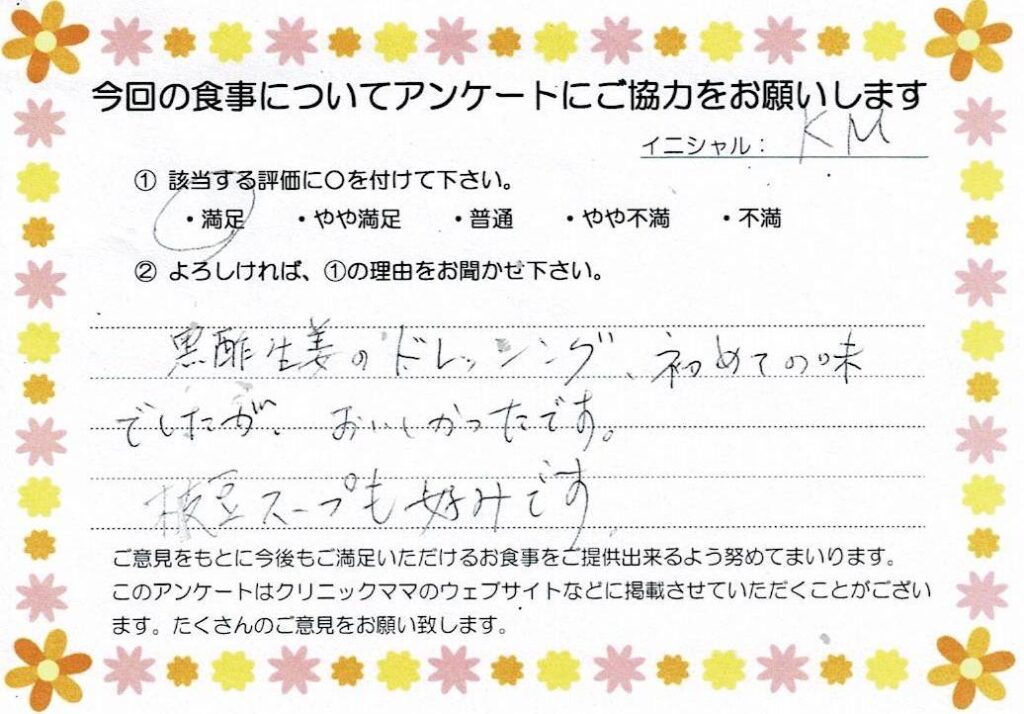 今回の食事についてアンケートにご協力をお願いします
イニシャル： KM
① 該当する評価に〇を付けて下さい。
・満足 ・やや満足 ・普通 ・やや不満 ・不満
② よろしければ、①の理由をお聞かせ下さい。
黒酢生姜のドレッシング、初めての味
でしたが、おいしかったです。
枝豆スープも好みです。
ご意見をもとに今後もご満足いただけるお食事をご提供出来るよう努めてまいります。
このアンケートはクリニックママのウェブサイトなどに掲載させていただくことがござい
ます。たくさんのご意見をお願い致します。